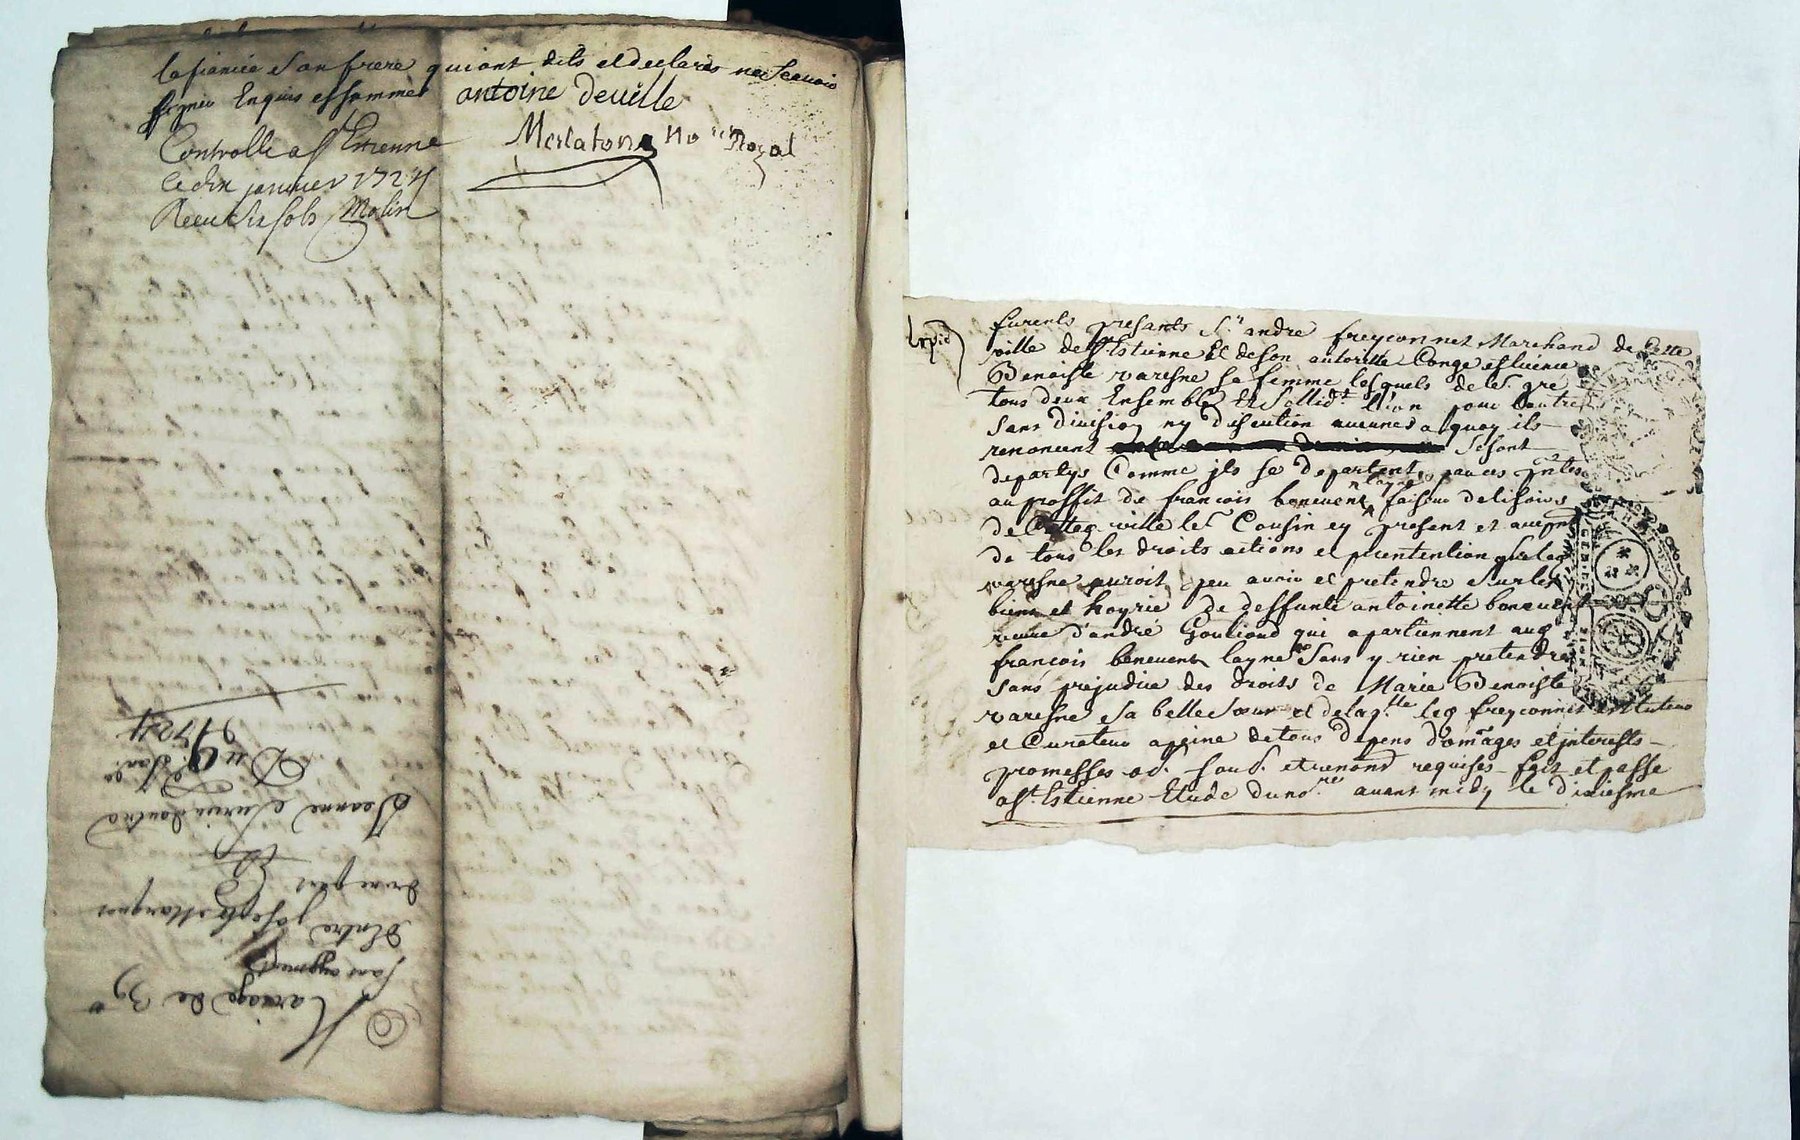 la fiancée son frere qui ont dits et declarés ne scavoir
signer Enquis et sommés antoine deville
Merlaton No.re Royal
Controllé a st Etienne
le dix janvier 1724
Receu six sols Molin
Mariage de 39
entre joseph
d'une part Et
Jeanne d'autre
Du 9e Janv.
1724
furents presants Sr andre freyconnet Marchand de cette
ville de St Estienne Et de son autoritte Conge et licence
Benoiste varesne sa femme lesquels de leur gre
tous deux Ensemble Et sollidt l'un pour l'autre
sans division ny discution aucunes a quoy ils
renoncent se sont
departys Comme jls se departent par ces pntes
au proffit de francois benevent layne faiseur de lisoirs
de Cette ville leur Cousin cy present et acceptnt
de tous les droits actions et prentention que la
varesne auroit peu avoir et pretendre sur les
biens et hoyrie de deffunte antoinette benevent
veuve d'andré Gouliond qui apartiennent aud
francois benevent layne sans y rien pretendre
sans prejudice des droits de Marie Benoiste
varesne sa belle soeur et de laqlle led freyconnet est tuteur
et Curateur a peine de tous depens domages et interests
promesses ob. soub. et renonc requises fait et passé
a St Estienne Etude du nore avant midy le dixiesme